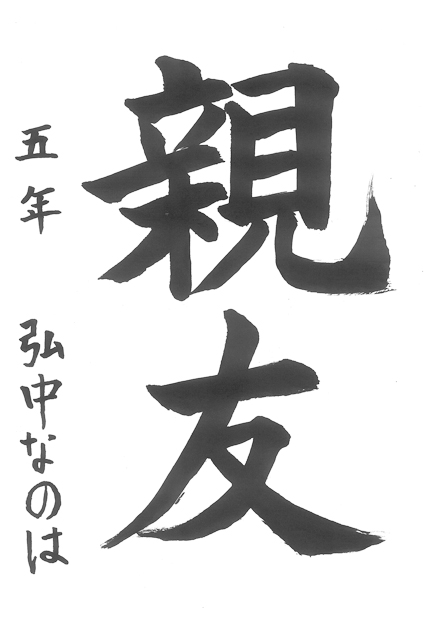 親友
五年 弘中なのは